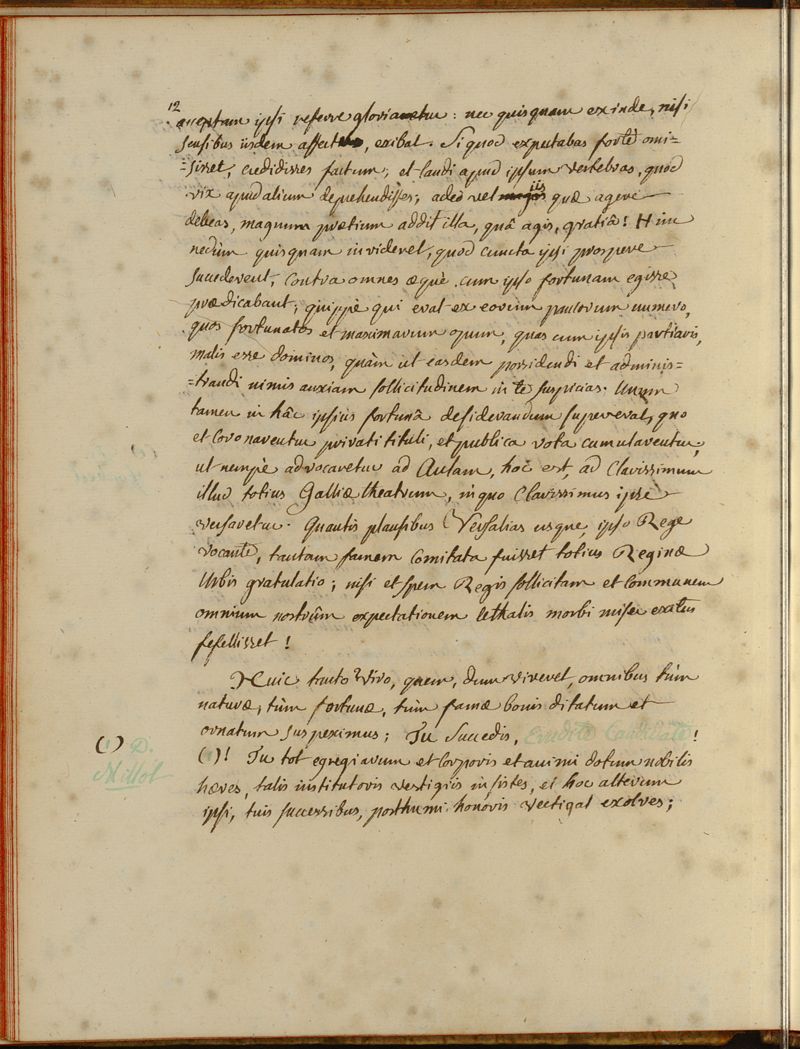 12
acceptam ipsi referre gloriaretur : nec quisquam exinde, nisi
sensibus iisdem affectus, exibat. Si quod expectabas fortè omi=
=sisset, credidisses factum; et laudi apud ipsum vertebras, quod
vix apud alium deprehendisses; adeò vel iis quæ agere
debeas, magnum prætium addit illa, quâ agis, gratiâ ! Hinc
nedùm quisquam invideret, quod cuncta ipsi prospere
succederent, contra omnes æquè cum ipso fortunam egisse
prædicabant; quippè qui erat ex eorum paucorum numero,
quos fortunatos et maximarum opum, quas cum ipsis partiaris,
malis esse dominos, quàm ut easdem possidendi et adminis=
=trandi nimis anxiam sollicitudinem in te suspicias. Unum
tamen in hâc ipsius fortunâ desiderandum supererat, quo
et coronarentur privati tituli, et publica vota cumularentur,
ut nempè advocaretur ad Aulam, hoc est, ad Clarissimum
illud totius Galliæ theatrum, in quo Clarissimus ipse
versaretur. Quantis plausibus Versalias usque, ipso Rege
vocante, tantam famem Comitata fuisset totius Reginæ
Urbis gratulatio; nisi et spem Regis sollicitam et communem
omnium nostrûm expectationem lethalis morbi miser exitus
fefellisset !
Huic tanto Viro, quem, dum viveret, omnibus tùm
naturæ, tùm fortunæ, tùm famæ bonis ditatum et
ornatum suspeximus; Tu succedis, Erudite Candidate !
(1) ! Tu tot egregiarum et Corporis et animi dotum nobilis
hæres, talis institutoris vestigiis insistes, et hoc alterum
ipsi, tuis successibus, posthumi honoris vectigal exolves;
(1) D.
Millot